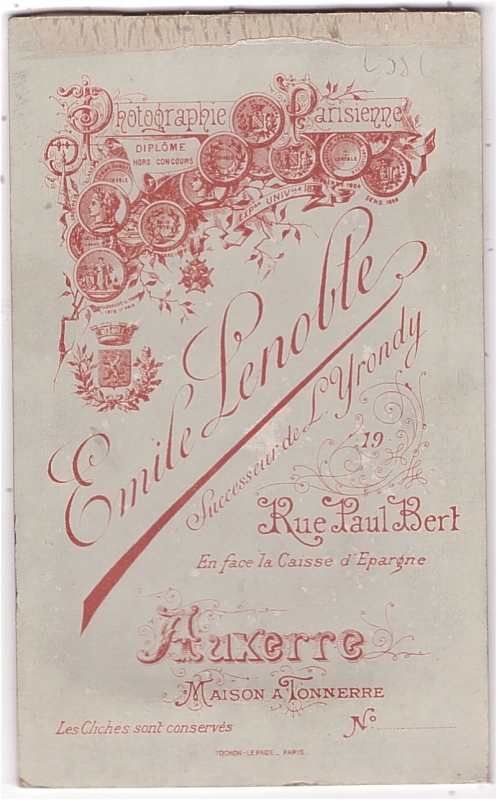 Photographie Parisienne
DIPLÔME
HORS CONCOURS
EXPON UNIVLLE 18
SENS 1866
Emile Lenoble
Successeur de L. Yrondy
19
Rue Paul Bert
En face la Caisse d'Epargne
Auxerre
MAISON A TONNERRE
Les Cliches sont conservés
No
TOCHON-LEPAGE _ PARIS.